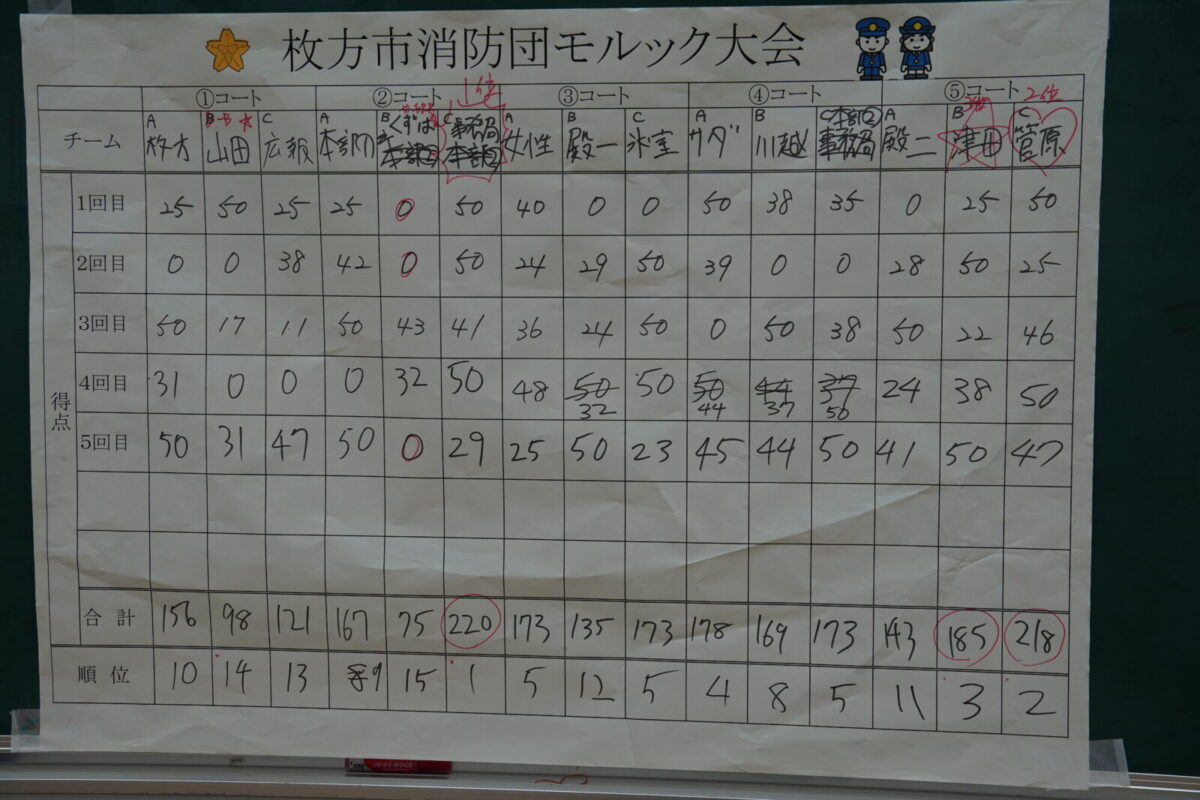 枚方市消防団モルック大会
①コート ②コート 1位 ③コート ④コート ⑤コート 2位
A B C A B C A B C A B C本部② A B 3位 C
チーム 枚方 山田 広報 本部① くずは 事務局 女性 殿一 氷室 サダ 川越 事務局 殿二 津田 菅原
本部② 本部②
得点
1回目 25 50 25 25 0 50 40 0 0 50 38 35 0 25 50
2回目 0 0 38 42 0 50 24 29 50 39 0 0 28 50 25
3回目 50 17 11 50 43 41 36 24 50 0 50 38 50 22 46
4回目 31 0 0 0 32 50 48 50 50 50 44 37 24 38 50
32 44 37 50
5回目 50 31 47 50 0 29 25 50 23 45 44 50 41 50 47
合計 156 98 121 167 75 220 173 135 173 178 169 173 143 185 218
順位 10 14 13 9 15 1 5 12 5 4 8 5 11 3 2